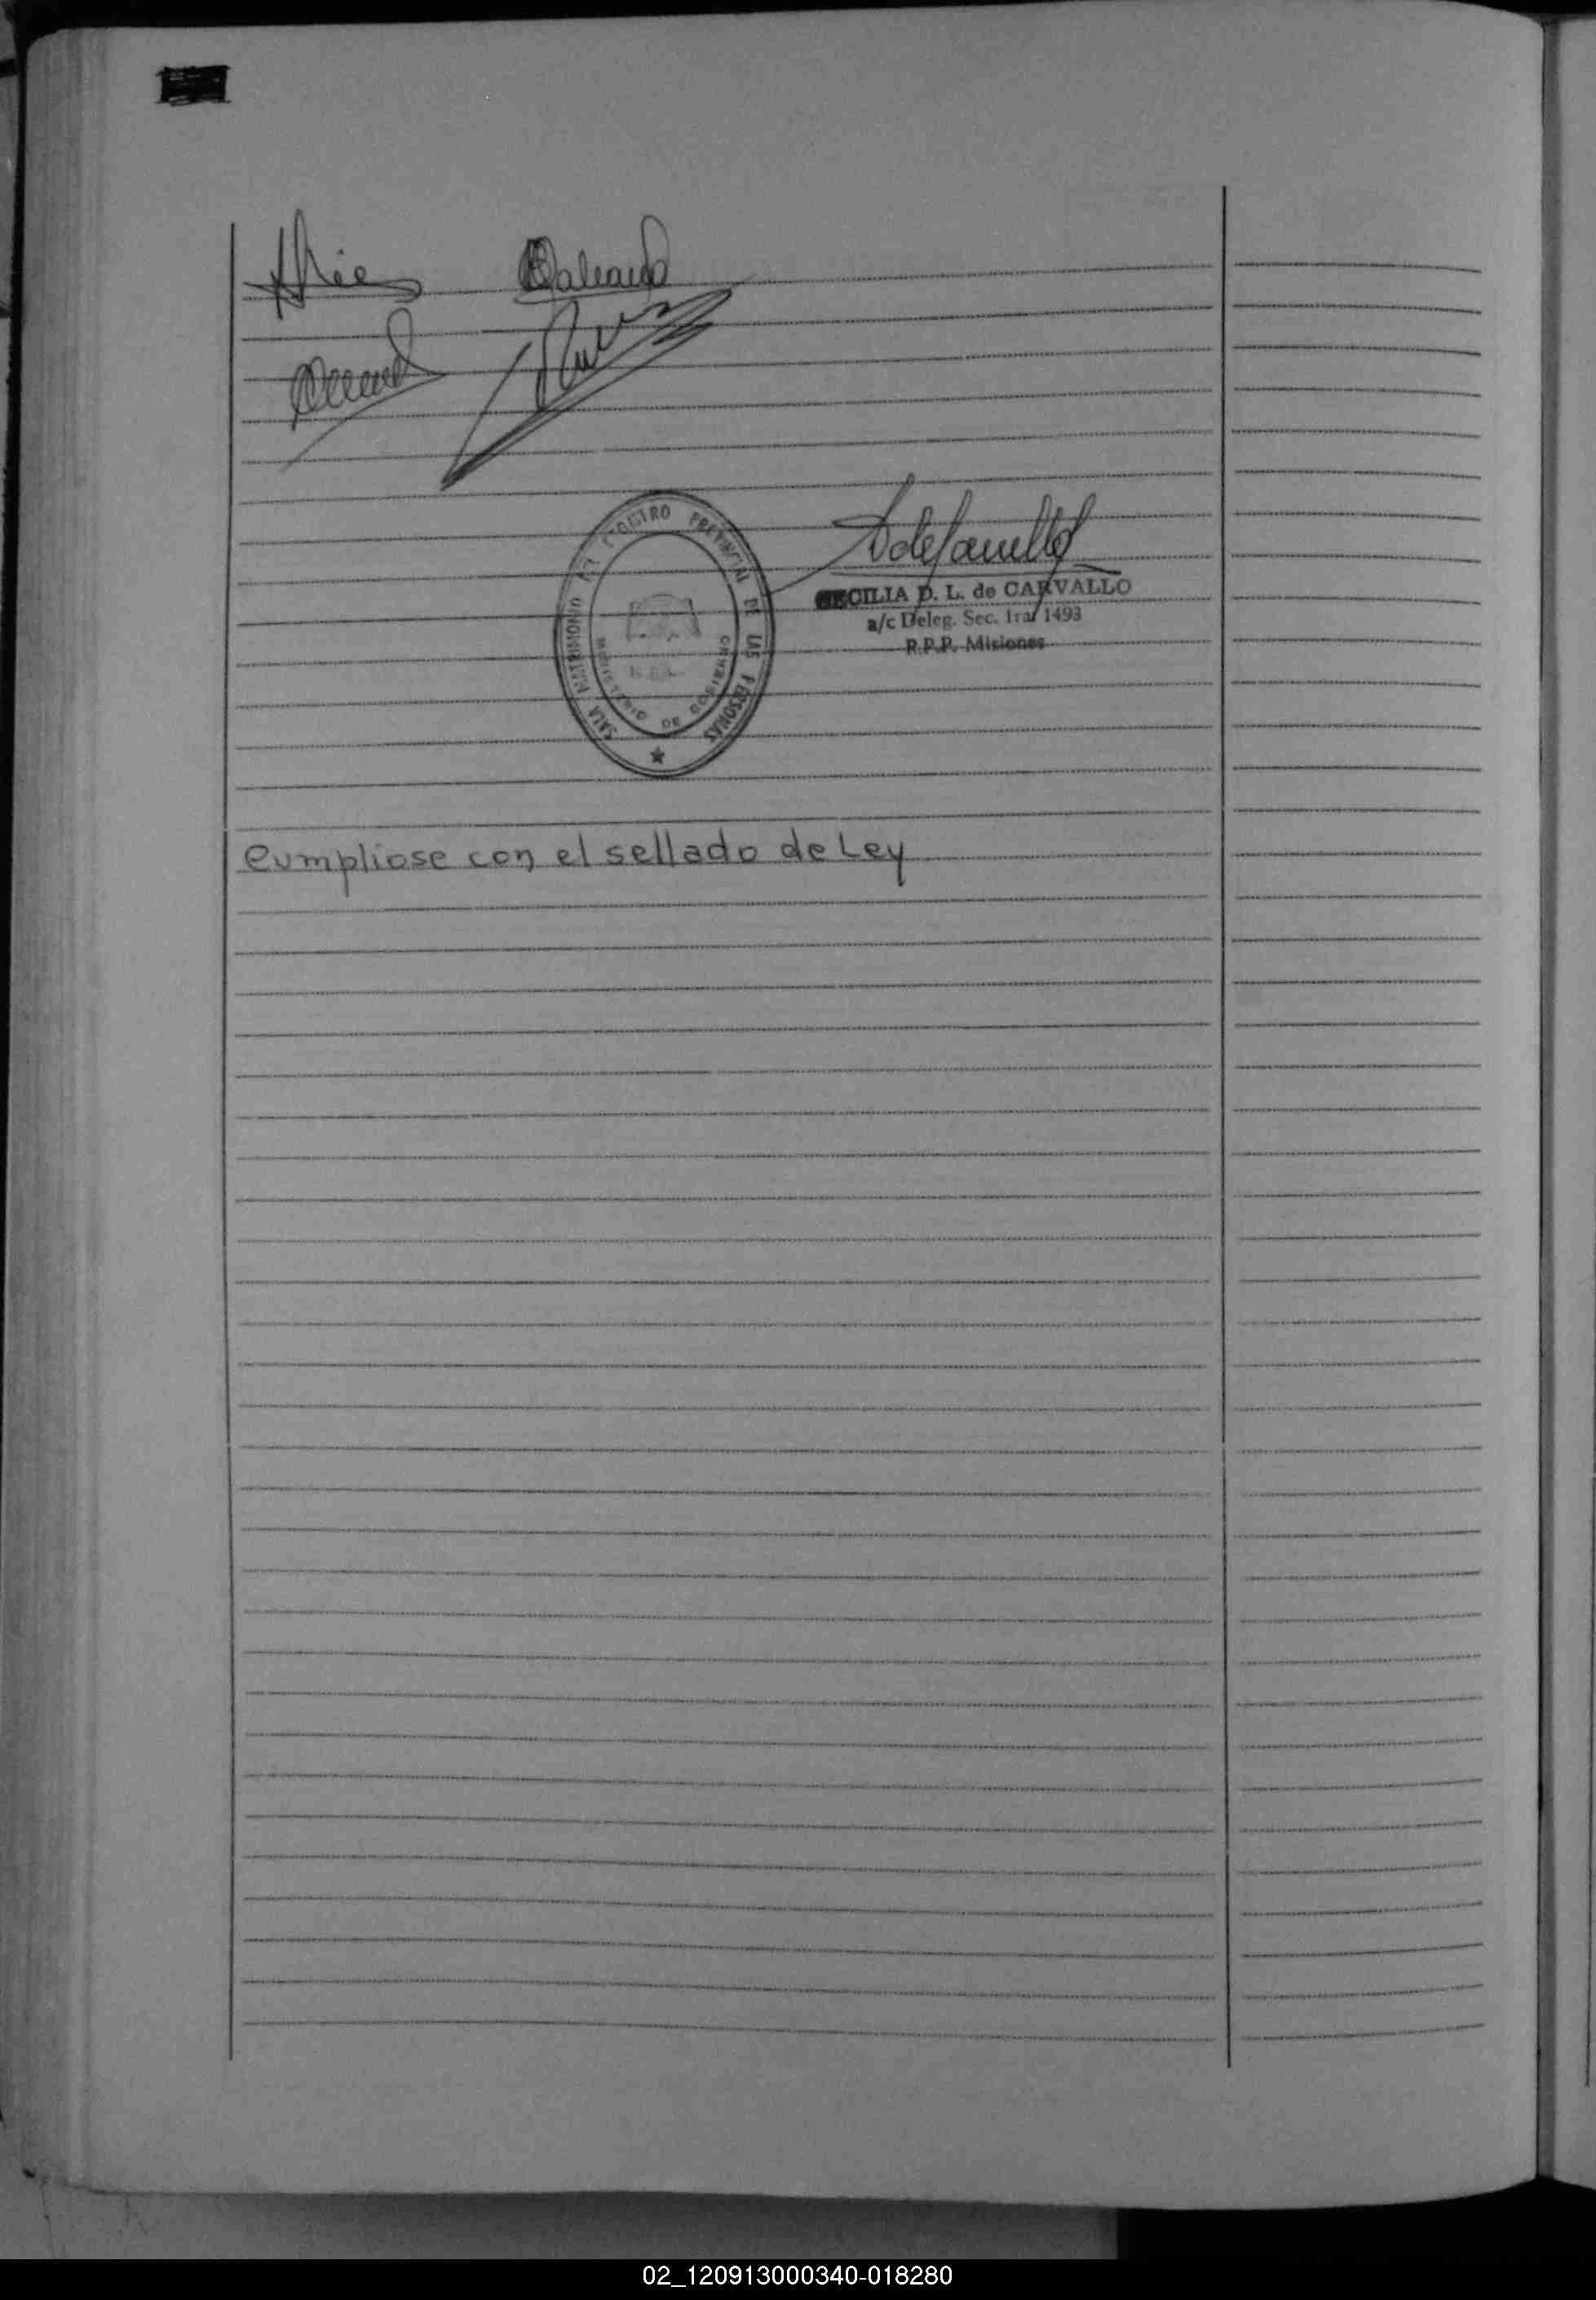 SALA MATRIMONIO DEL REGISTRO PROVINCIAL DE LAS PERSONAS
MINISTERIO DE GOBIERNO
CECILIA D. L. de CARVALLO
a/c Deleg. Sec. 1ra/ 1493
R.P.P. Misiones
Cumpliose con el sellado de Ley
02_120913000340-018280